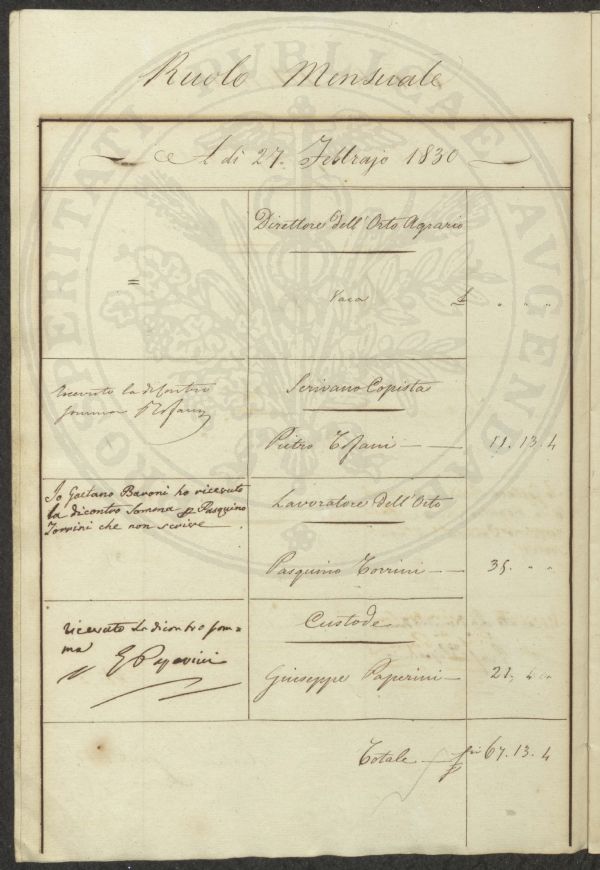 Ruolo Mensuale
A dì 27. Febbrajo 1830
Direttore dell'Orto Agrario
=
Vaca £ " " "
Ricevuto la di contro
somma P Tofani
Scrivano Copista
Pietro Tofani 11. 13. 4
Io Gaetano Baroni ho ricevuto
la dicontro Somma p Pasquino
Torrini che non scrive
Lavoratore dell'Orto
Pasquino Torrini 35. " "
ricevuto La dicontro som=
ma
G Paperini
Custode
Giuseppe Paperini 21. " "
Totale 67. 13. 4
PROSPERITATI PUBLICAE AUGENDAE